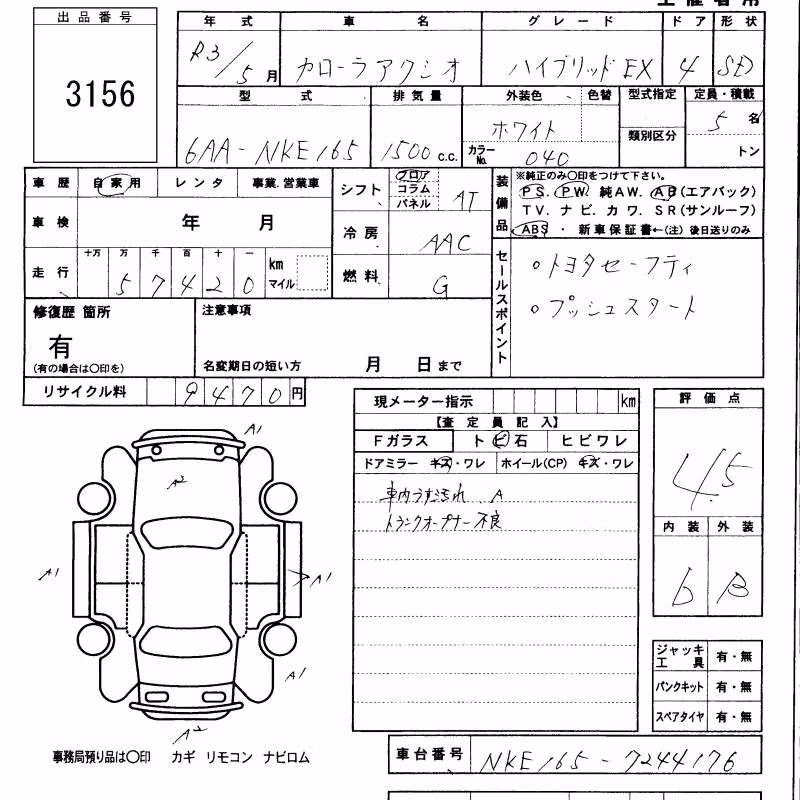 出品番号
3156
年式 車名 グレード ドア 形状
R3/5月 カローラアクシオ ハイブリッドEX 4 SED
型式 排気量 外装色 色替 型式指定 定員・積載
6AA-NKE165 1500 c.c. ホワイト 類別区分 5名
カラーNo. 040 トン
車歴 自家用 レンタ 事業.営業車
車検 年 月
走行 十万 万 千 百 十 一 km マイル
57420
シフト フロア コラム パネル AT
冷房 AAC
燃料 G
装備品
※純正のみ〇印をつけて下さい。
PS. PW. 純AW. AB(エアバック)
TV. ナビ. カワ. SR(サンルーフ)
ABS ・ 新車保証書←(注) 後日送りのみ
セールスポイント
○トヨタセーフティ
○プッシュスタート
修復歴 箇所
有
(有の場合は〇印を)
注意事項
名変期日の短い方 月 日まで
リサイクル料 9470円
現メーター指示 km
【査定員記入】
Fガラス トビ石 ヒビワレ
ドアミラー キズ・ワレ ホイール(CP) キズ・ワレ
車内うす汚れ A
トランクオープナー不良
評価点
4.5
内装 外装
b B
ジャッキ工具 有・無
パンクキット 有・無
スペアタイヤ 有・無
A1
A2
A1
A1
A1
A2
事務局預り品は〇印 カギ リモコン ナビロム
車台番号 NKE165-7244176